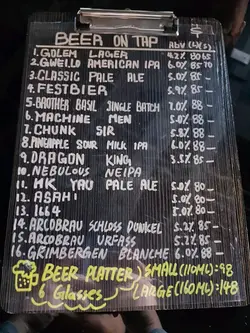 BEER ON TAP
ABV (%) S L
1. GOLEM LAGER 4.2% 80 65
2. GWEILO AMERICAN IPA 6.0% 85 70
3. CLASSIC PALE ALE 5.0% 85 -
4. FESTBIER 5.9% 85 -
5. BROTHER BASIL SINGLE BATCH 7.0% 88 -
6. MACHINE MEN 5.0% 88 -
7. CHUNK SIR 5.8% 88 -
8. PINEAPPLE SOUR MILK IPA 6.0% 88 -
9. DRAGON KING 3.5% 85 -
10. NEBULOUS NEIPA
11. HK YAU PALE ALE 5.0% 80 -
12. ASAHI 5.0% 80 -
13. 1664 5.0% 80 -
14. ARCOBRAU SCHLOSS DUNKEL 5.2% 85 -
15. ARCOBRAU URFASS 5.2% 85 -
16. GRIMBERGEN BLANCHE 6.0% 88 -
BEER PLATTER SMALL (110ML): 98
6 Glasses LARGE (160ML): 148